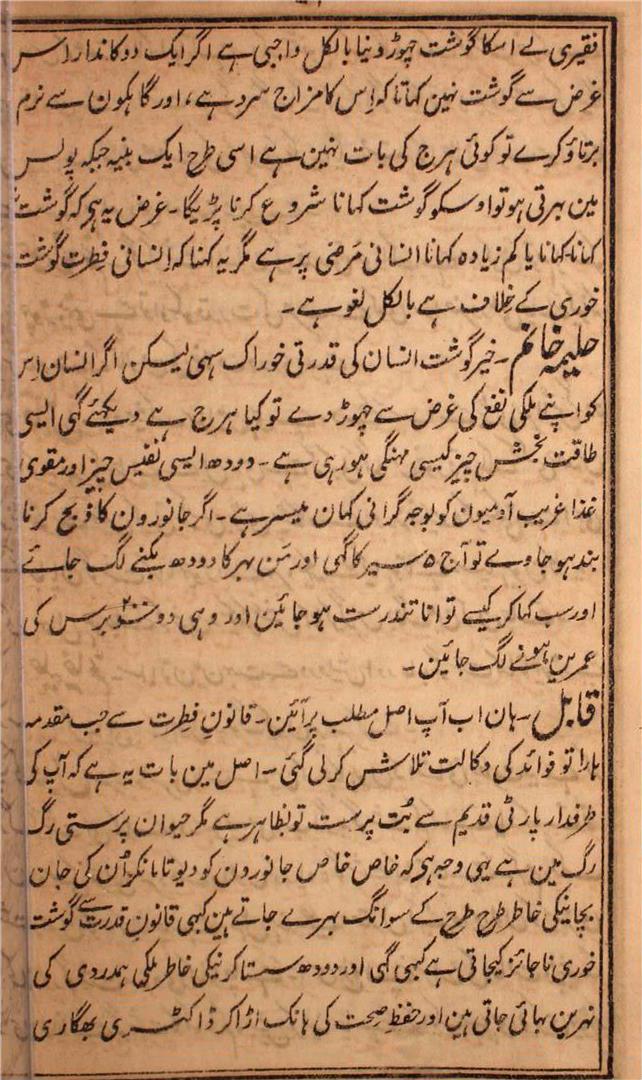 فقیری لے اسکا گوشت چھوڑ دنیا بالکل واجبی ہے اگر ایک دوکاندار اس
غرض سے گوشت نہین کہاتا کہ اِس کا مزاج سرد ہے، اور گاہکون سے نرم
برتاؤ کرے تو کوئی ہرج کی بات نہین ہے اسی طرح ایک بنیہ جبکہ پولس
مین بہرتی ہو تو اوسکو گوشت کہانا شروع کرنا پڑیگا۔ غرض یہ ہیکہ گوشت
کہانا نکہانا یا کم زیادہ کہانا انسانی مَرضی پر ہے مگر یہ کہنا کہ اِنسانی فِطرت گوشت
خوری کے خِلاف ہے بالکل لغو ہے۔
حلیمہ خانم۔ خیر گوشت انسان کی قدرتی خوراک سہی لیکن اگر انسان اِس
کو اپنے ملکی نفع کی غرض سے چہوڑ دے تو کیا ہرج ہے دیکہئے گہی ایسی
طاقت بخش چیز کیسی مہنگی ہو رہی ہے۔ دودھ ایسی نفیس چیز اور مقوی
غذا غریب آدمیون کو بوجہ گرانی کہان میسر ہے۔ اگر جانورون کا ذبح کرنا
بند ہو جاوے تو آج ۵ سیر کا گہی اور مَن بہر کا دودھ بکنے لگ جائے
اور سب کہا کر کیسے توانا تندرست ہو جائین اور وہی دو سَو ۲۰۰ برس کی
عمرین ہونے لگ جائین۔
قابل۔ ہان اب آپ اصل مطلب پر آئین۔ قانونِ فِطرت سے جب مقدمہ
ہارا تو فوائد کی وکالت تلاش کر لی گئی۔ اصل مین بات یہ ہے کہ آپ کی
طرفدار پارٹی قدیم سے بُت پرست تو بظاہر ہے مگر حیوان پرستی رگ
رگ مین ہے یہی وجہ ہی کہ خاص خاص جانورون کو دیوتا مانکر اُن کی جان
بچانیکی خاطر طرح طرح کے سوانگ بہرے جاتے ہین کبہی قانونِ قدرت سے گوشت
خوری ناجائز کیجاتی ہے کبہی گہی اور دودھ سستا کرنیکی خاطر ملکی ہمدردی کی
نہرین بہائی جاتی ہین اور حفظِ صحت کی ہانک اڑا کر ڈاکٹری بھگاری